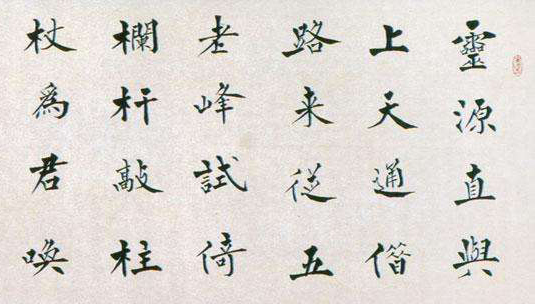 靈源直與
上天通借
路来從五
老峰試倚
欄杆敲柱
杖為君喚